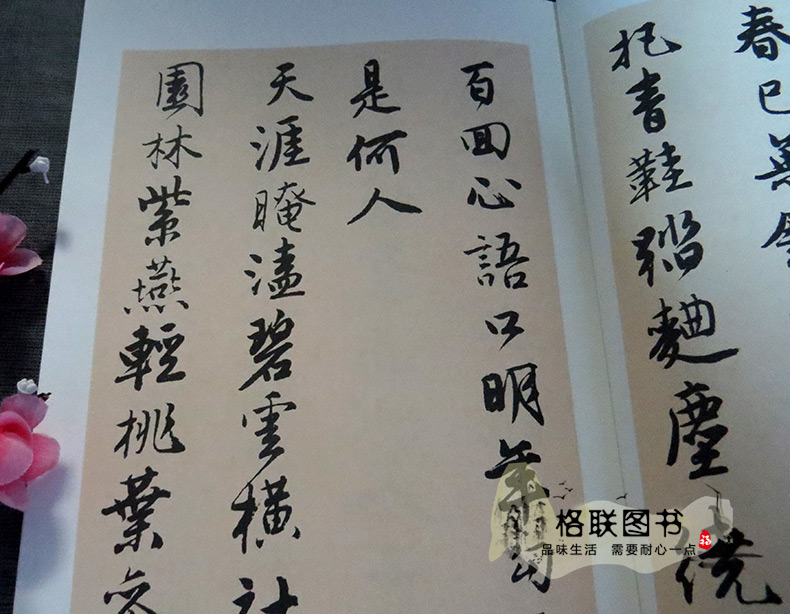 春已
把青鞋踏麯塵繞
百回心語口明年
是何人
天涯晻溘碧雲橫社
園林紫燕輕桃葉
格联图书
品味生活 需要耐心一点